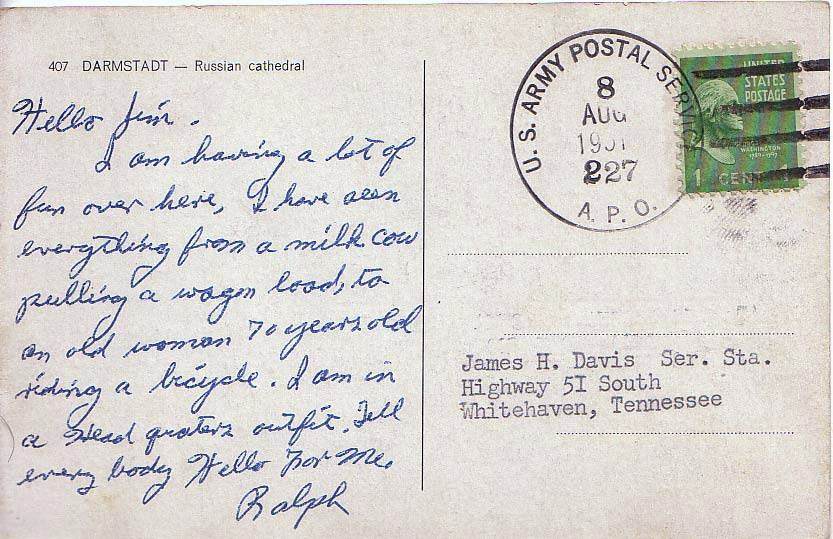 407 DARMSTADT — Russian cathedral
Hello Jim.
I am having a lot of
fun over here, I have seen
everything from a milk cow
pulling a wagon load, to
an old woman 70 years old
riding a bicycle. I am in
a Head quaters outfit. Tell
every body Hello For Me.
Ralph
U. S. ARMY POSTAL SERVICE
8
AUG
1951
227
A. P. O.
UNITED
STATES
POSTAGE
WASHINGTON
1 CENT
James H. Davis Ser. Sta.
Highway 5I South
Whitehaven, Tennessee